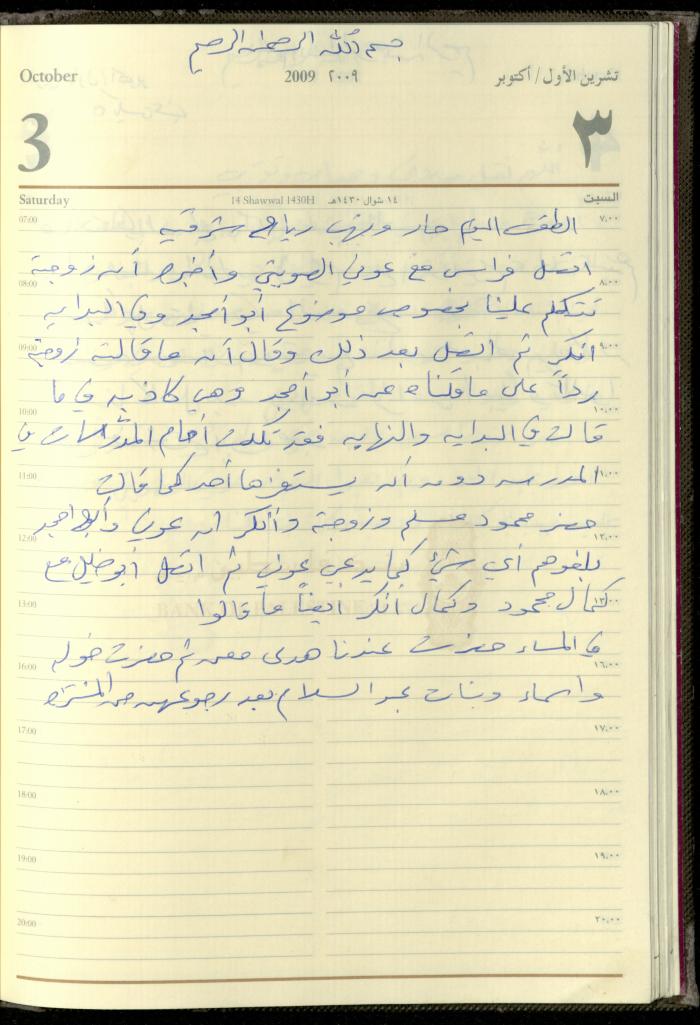 بسم الله الرحمن الرحيم
October 2009 ٢٠٠٩ تشرين الأول / أكتوبر
3 ٣
Saturday 14 Shawwal 1430H ١٤ شوال ١٤٣٠هـ السبت
07:00 ٧,٠٠
الطقس اليوم حار وتهب رياح شرقيه
اتصل فراس مع عوني وأخبره أن زوجته
08:00 ٨,٠٠
تتكلم علينا بخصوص موضوع أبو أمجد وفي البدايه
09:00 ٩,٠٠
أنكر ثم اتصل بعد ذلك وقال أن ما قالته زوجته
رداً على ما قلناه عن أبو أمجد وهي كاذبه في ما
10:00 ١٠,٠٠
قالت في البدايه والنهايه فقد تكلمت أمام المدرسات في
11:00 ١١,٠٠
المدرسه دون أن يستفزها أحد كما قالت
حضر محمود مسلم وزوجته وأنكر ان عوني وأبو امجد
12:00 ١٢,٠٠
بلغوهم أي شيء كما يدعي عوني ثم اتصل أبو خليل مع
13:00 ١٣,٠٠
كمال محمود وكمال أنكر ايضاً ما قالوا
في المساء حضرت عندنا هدى ثم حضرت خوله
16:00 ١٦,٠٠
واسماء وبنات عبد السلام بعد رجوعهن من المنتزه
17:00 ١٧,٠٠
18:00 ١٨,٠٠
19:00 ١٩,٠٠
20:00 ٢٠,٠٠